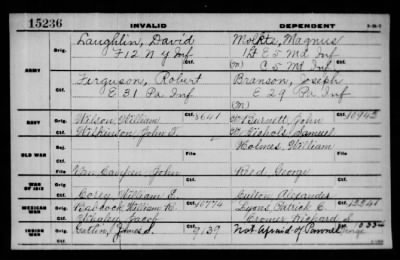 15236
INVALID
DEPENDENT
ARMY
Orig.
Laughlin, David
Moekte, Magnus
F 12 N Y Inf
1st E 5 Md Inf
Ctf.
(m) C 5 Md Inf
Orig.
Ferguson, Robert
Branson, Joseph
E 31 Pa Inf
E 29 Pa Inf
Ctf.
(m)
NAVY
Orig.
Wilson, William
Ctf. 3641
Burnett, John
Ctf. 10945
Wilkinson, John
Nichols, Samuel
OLD WAR
Rej.
Holmes, William
File
File
Orig.
Van Campen, John
Weed, George
Ctf.
WAR OF 1812
Orig.
Corey, William
Culton, Alexander
MEXICAN WAR
Orig.
Babcock, William
Ctf. 10774
Lyons, Patrick C
Ctf. 12841
Whaley, Jacob
Cromer, Richard
INDIAN WAR
Orig.
Gatlin, James
Ctf. 9139
Not Afraid of Pawnee
George